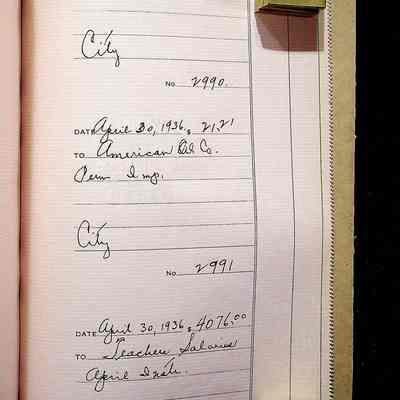 City
No 2990.
DATE April 30, 1936. $ 21.21
TO American Oil Co.
Perm Imp.
City
No 2991
DATE April 30, 1936. $ 4076.00
TO Teachers Salaries
April Instr.